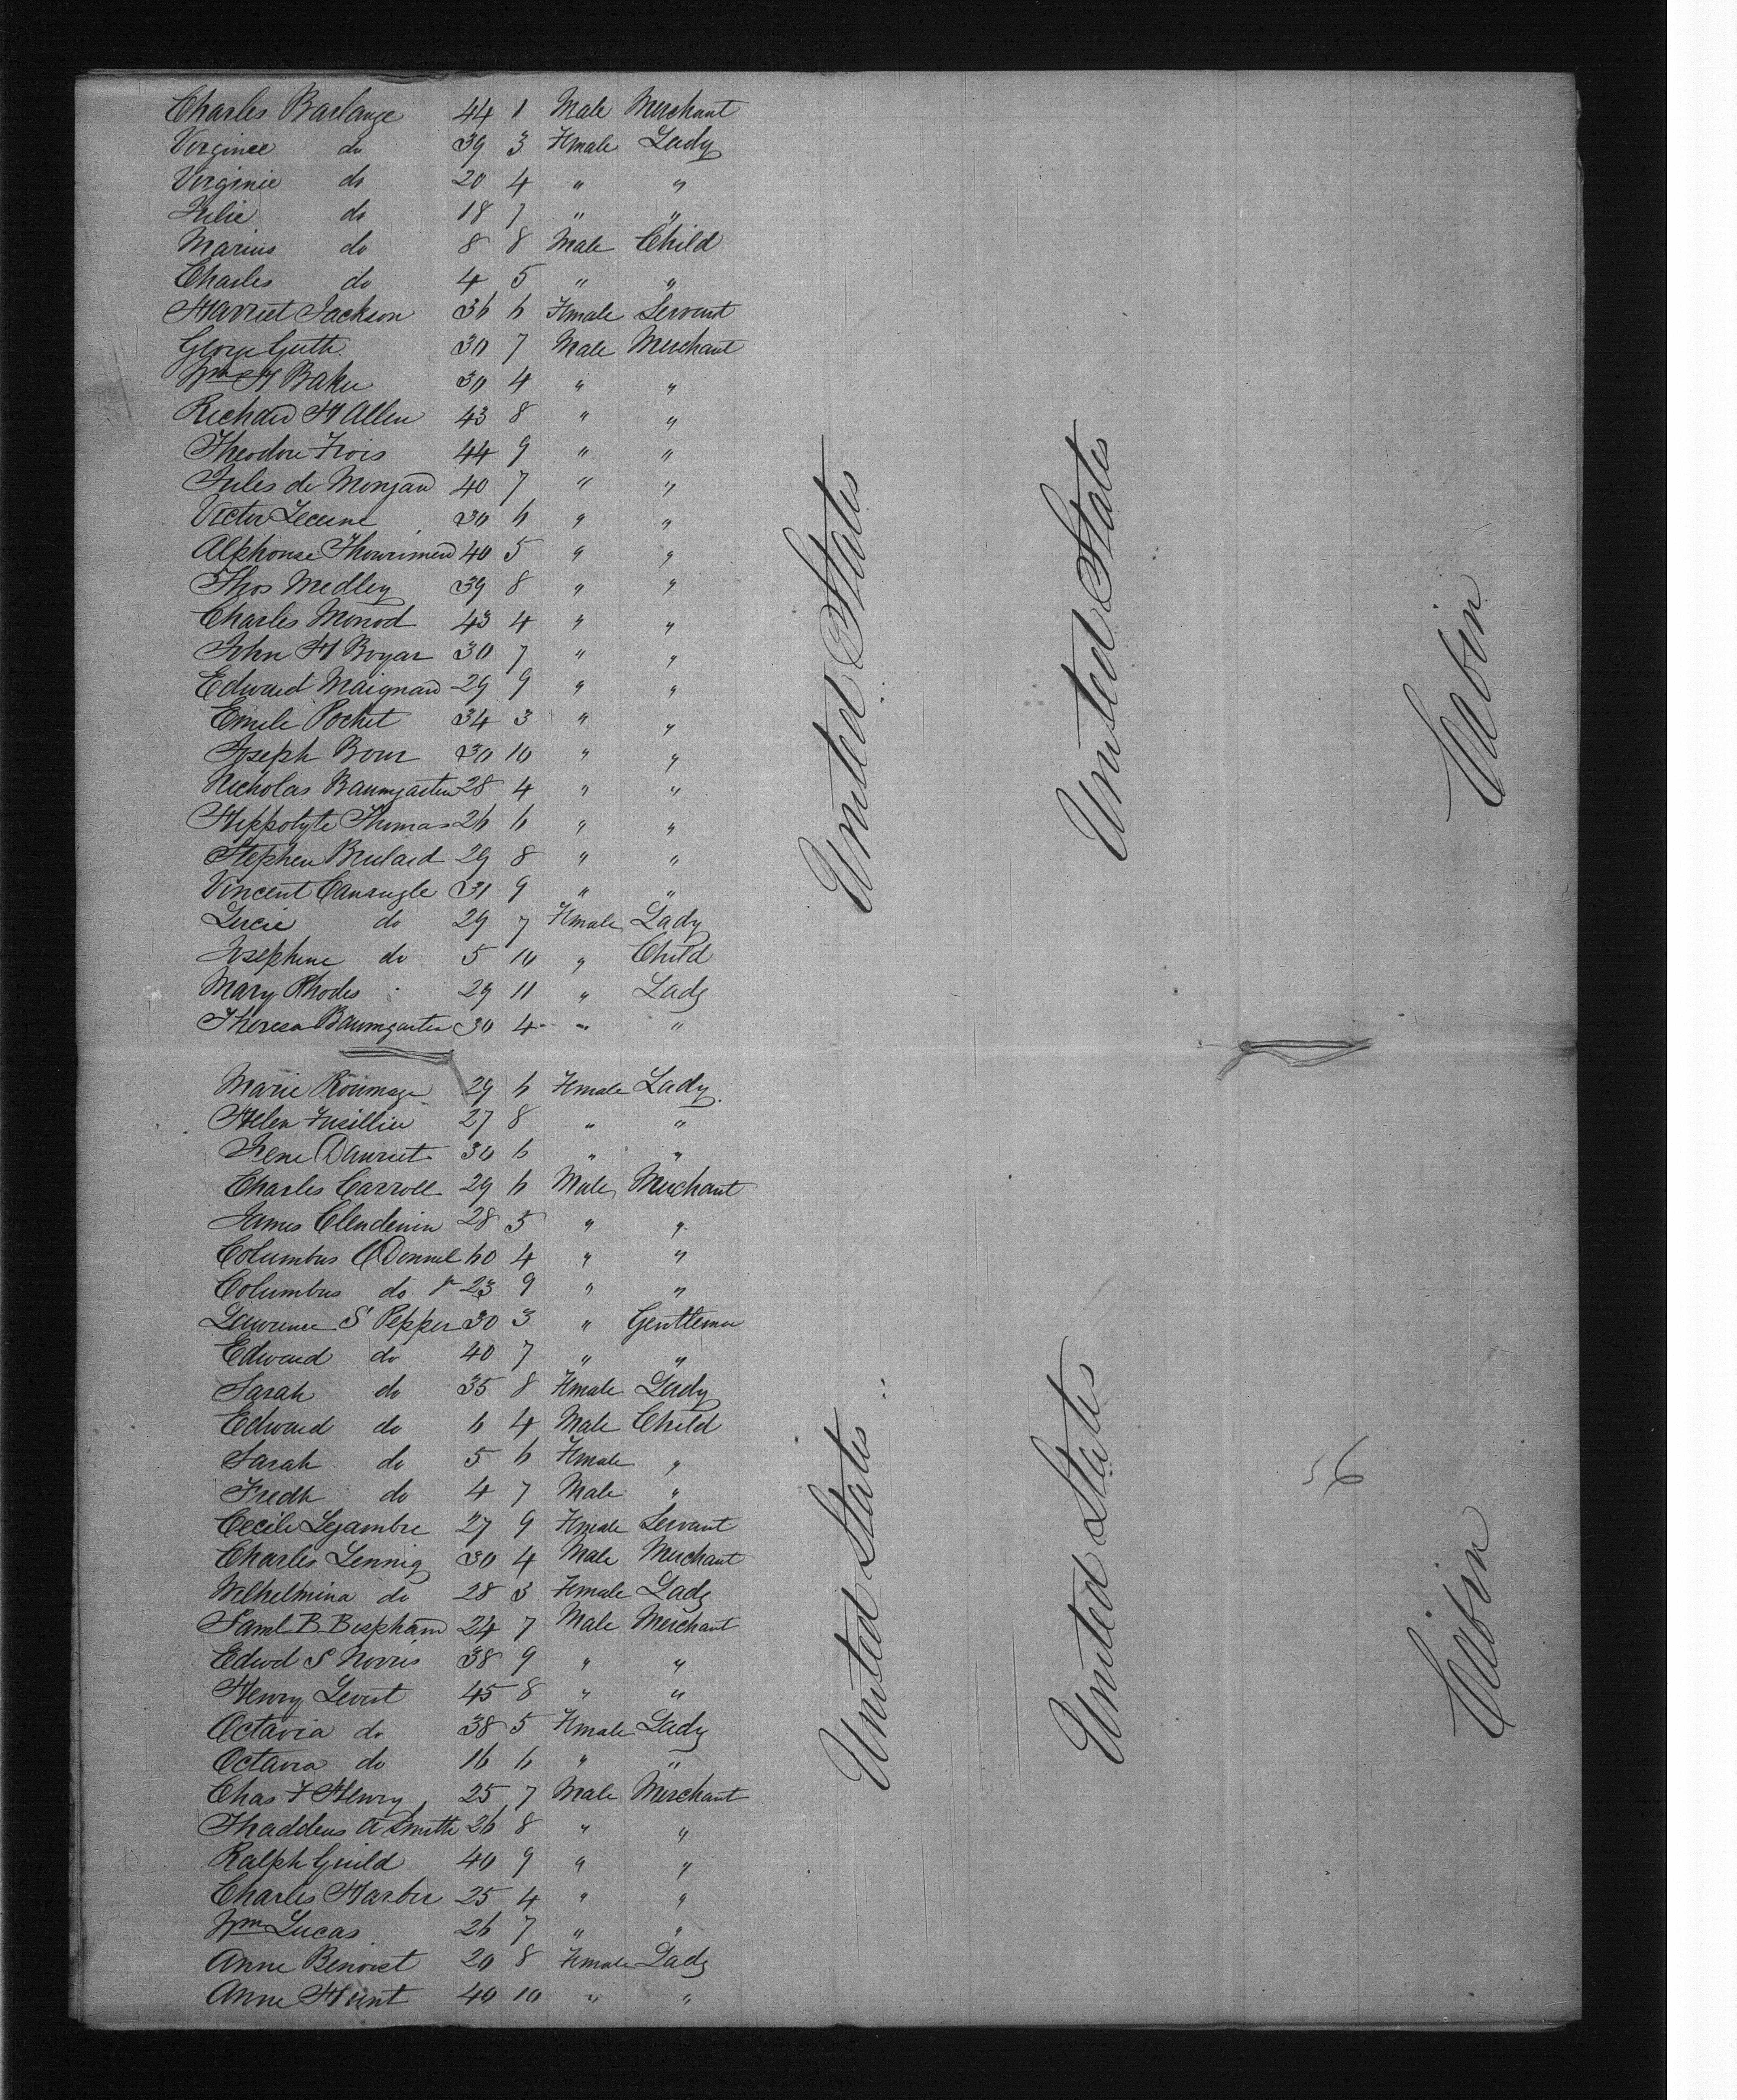 Charles Barlange 44 1 Male Merchant
Virginee do 39 3 Female Lady
Virginie do 20 4 " "
Julie do 18 7 " "
Marius do 8 8 Male Child
Charles do 4 5 " "
Harriet Jackson 36 6 Female Servant
George Guth 30 7 Male Merchant
Wm H Baker 30 4 " "
Richard H Allen 43 8 " "
Theodore Frois 44 9 " "
Jules de Monjaud 40 7 " "
Victor 30 6 " "
Alphonse 40 5 " "
Thos Medley 39 8 " "
Charles Monod 43 4 " "
John H Bogar 30 7 " "
Edward Maignard 29 9 " "
Emile Pochet 34 3 " "
Joseph Bour 30 10 " "
Nicholas Baumgarten 28 4 " "
Hippolyte Thomas 26 6 " "
Stephen Brulard 29 8 " "
Vincent 31 9 " "
Lucie do 29 7 Female Lady
Josephine do 5 10 " Child
Mary Rhodes 29 11 " Lady
Theresa Baumgarten 30 4 " "
Marie Roumage 29 6 Female Lady
Helen Fusillier 27 8 " "
Irene Dauriet 30 6 " "
Charles Carroll 29 6 Male Merchant
James Clendenin 28 5 " "
Columbus O'Donnel 60 4 " "
Columbus do Jr 23 9 " "
Lawrence S Pepper 30 3 " Gentleman
Edward do 40 7 " "
Sarah do 35 8 Female Lady
Edward do 6 4 Male Child
Sarah do 5 6 Female "
Fredk do 4 7 Male "
Cecile Lejambre 27 9 Female Servant
Charles Lennig 30 4 Male Merchant
Wilhelmina do 28 3 Female Lady
Saml B. Bispham 24 7 Male Merchant
Edwd S Norris 38 9 " "
Henry Levert 45 8 " "
Octavia do 38 5 Female Lady
Octavia do 16 6 " "
Chas F Henry 25 7 Male Merchant
Thaddeus A Smith 26 8 " "
Ralph Guild 40 9 " "
Charles Harter 25 4 " "
Wm Lucas 26 7 " "
Anne Benoist 20 8 Female Lady
Anne Hunt 40 10 " "
United States
United States
Cabin
United States
United States
56
Cabin